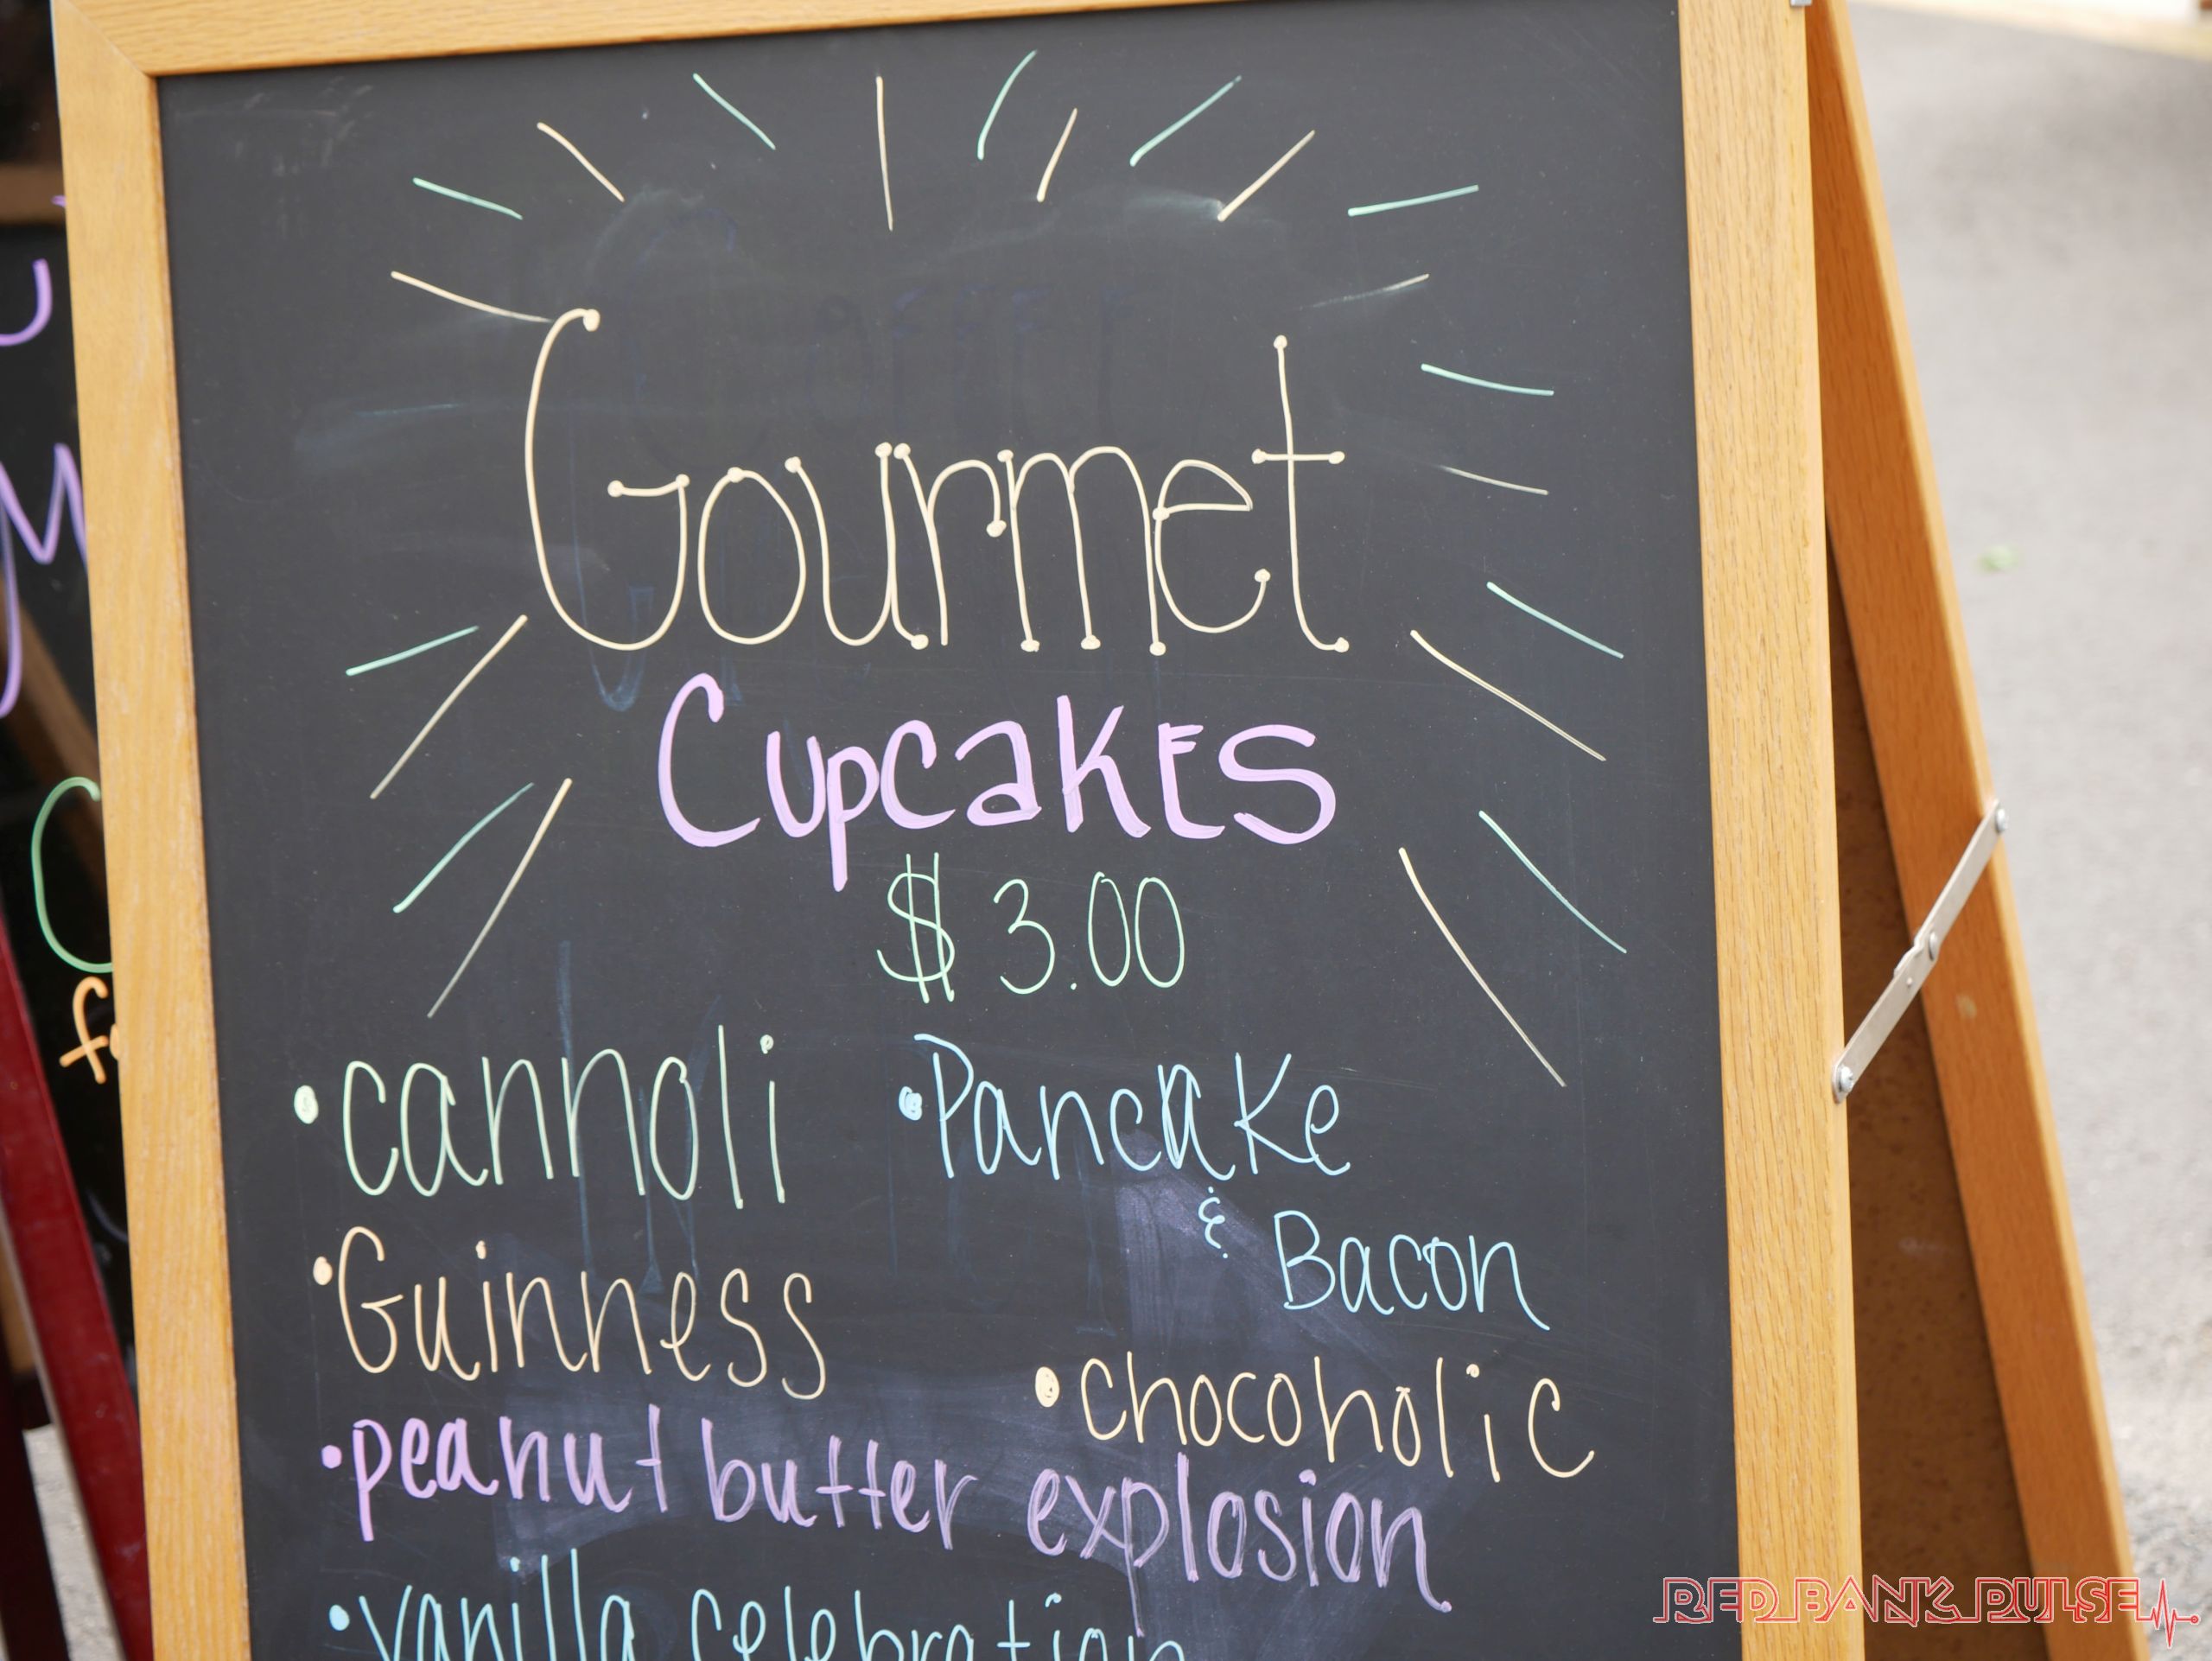 Gourmet
Cupcakes
$3.00
• cannoli
• Pancake
& Bacon
• Guinness
• chocoholic
• peanut butter explosion
• vanilla celebration
RED BANK PULSE